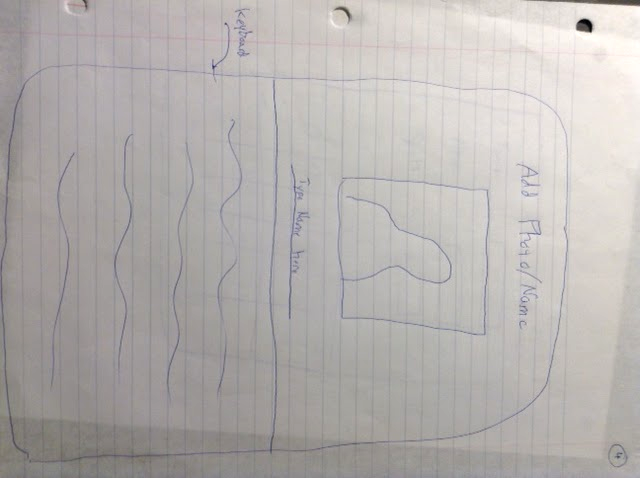 4
Add Photo/Name
Type Name here
Keyboard